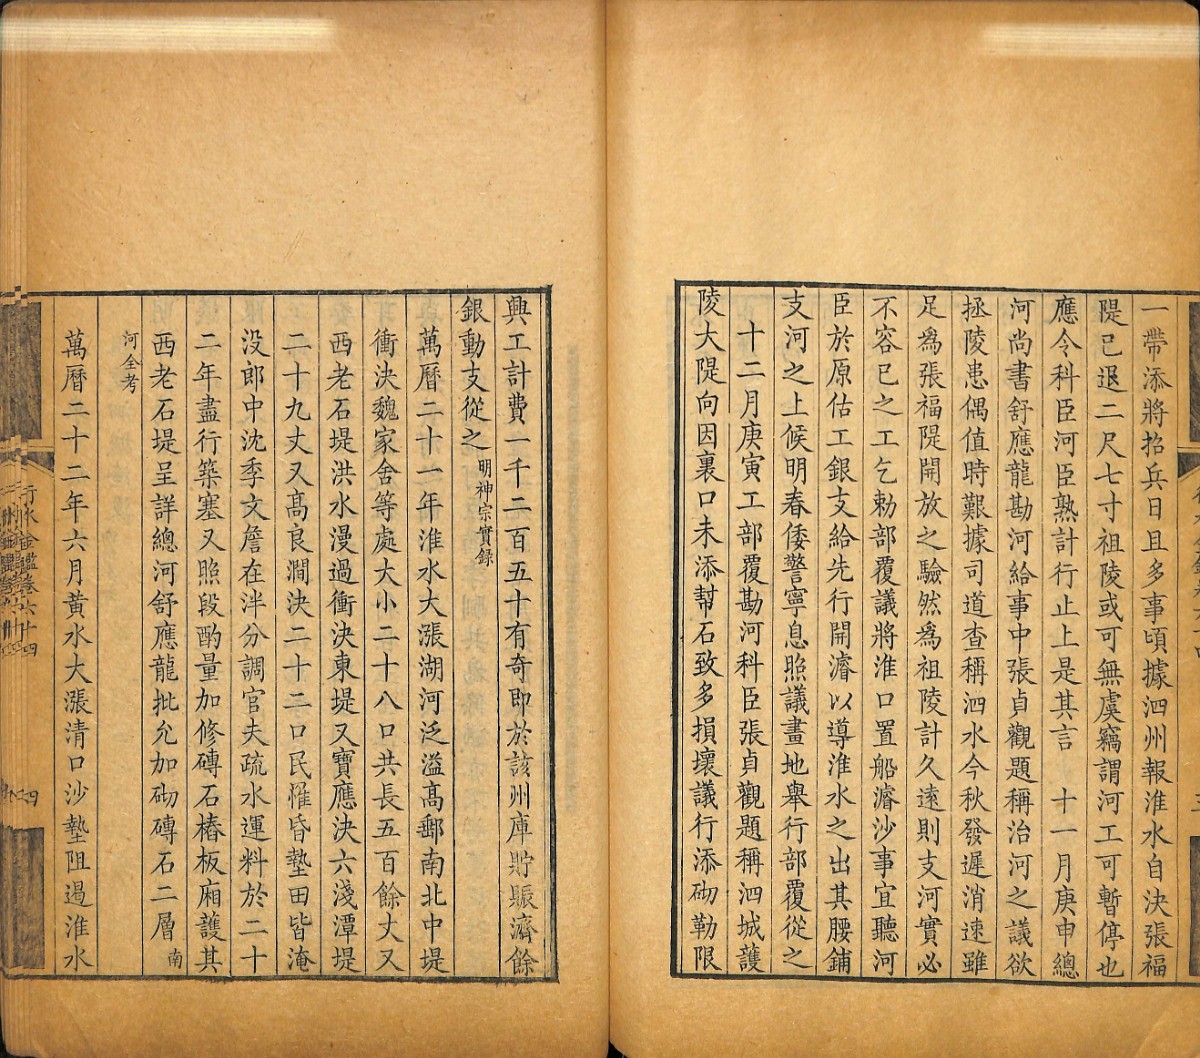 一帶添將招兵日且多事頃據泗州報淮水自決張福
隄已退二尺七寸祖陵或可無虞竊謂河工可暫停也
應令科臣河臣熟計行止上是其言　十一月庚申總
河尚書舒應龍勘河給事中張貞觀題稱治河之議欲
拯陵患偶值時艱據司道查稱泗水今秋發遲消速雖
足爲張福隄開放之驗然爲祖陵計久遠則支河實必
不容已之工乞勅部覆議將淮口置船濬沙事宜聽河
臣於原估工銀支給先行開濬以導淮水之出其腰鋪
支河之上候明春倭警寧息照議畫地舉行部覆從之
十二月庚寅工部覆勘河科臣張貞觀題稱泗城護
陵大隄向因裏口未添幫石致多損壞議行添砌勒限
興工計費一千二百五十有奇即於該州庫貯賑濟餘
銀動支從之明神宗實錄
萬曆二十一年淮水大漲湖河泛溢高郵南北中堤
衝決魏家舍等處大小二十八口共長五百餘丈又
西老石堤洪水漫過衝決東堤又寶應決六淺潭堤
二十九丈又高良澗決二十二口民罹昏墊田皆淹
没郎中沈季文詹在泮分調官夫疏水運料於二十
二年盡行築塞又照段酌量加修磚石樁板廂護其
西老石堤呈詳總河舒應龍批允加砌磚石二層南
河全考
萬曆二十二年六月黃水大漲清口沙墊阻遏淮水
行水金鑑卷六十四
四